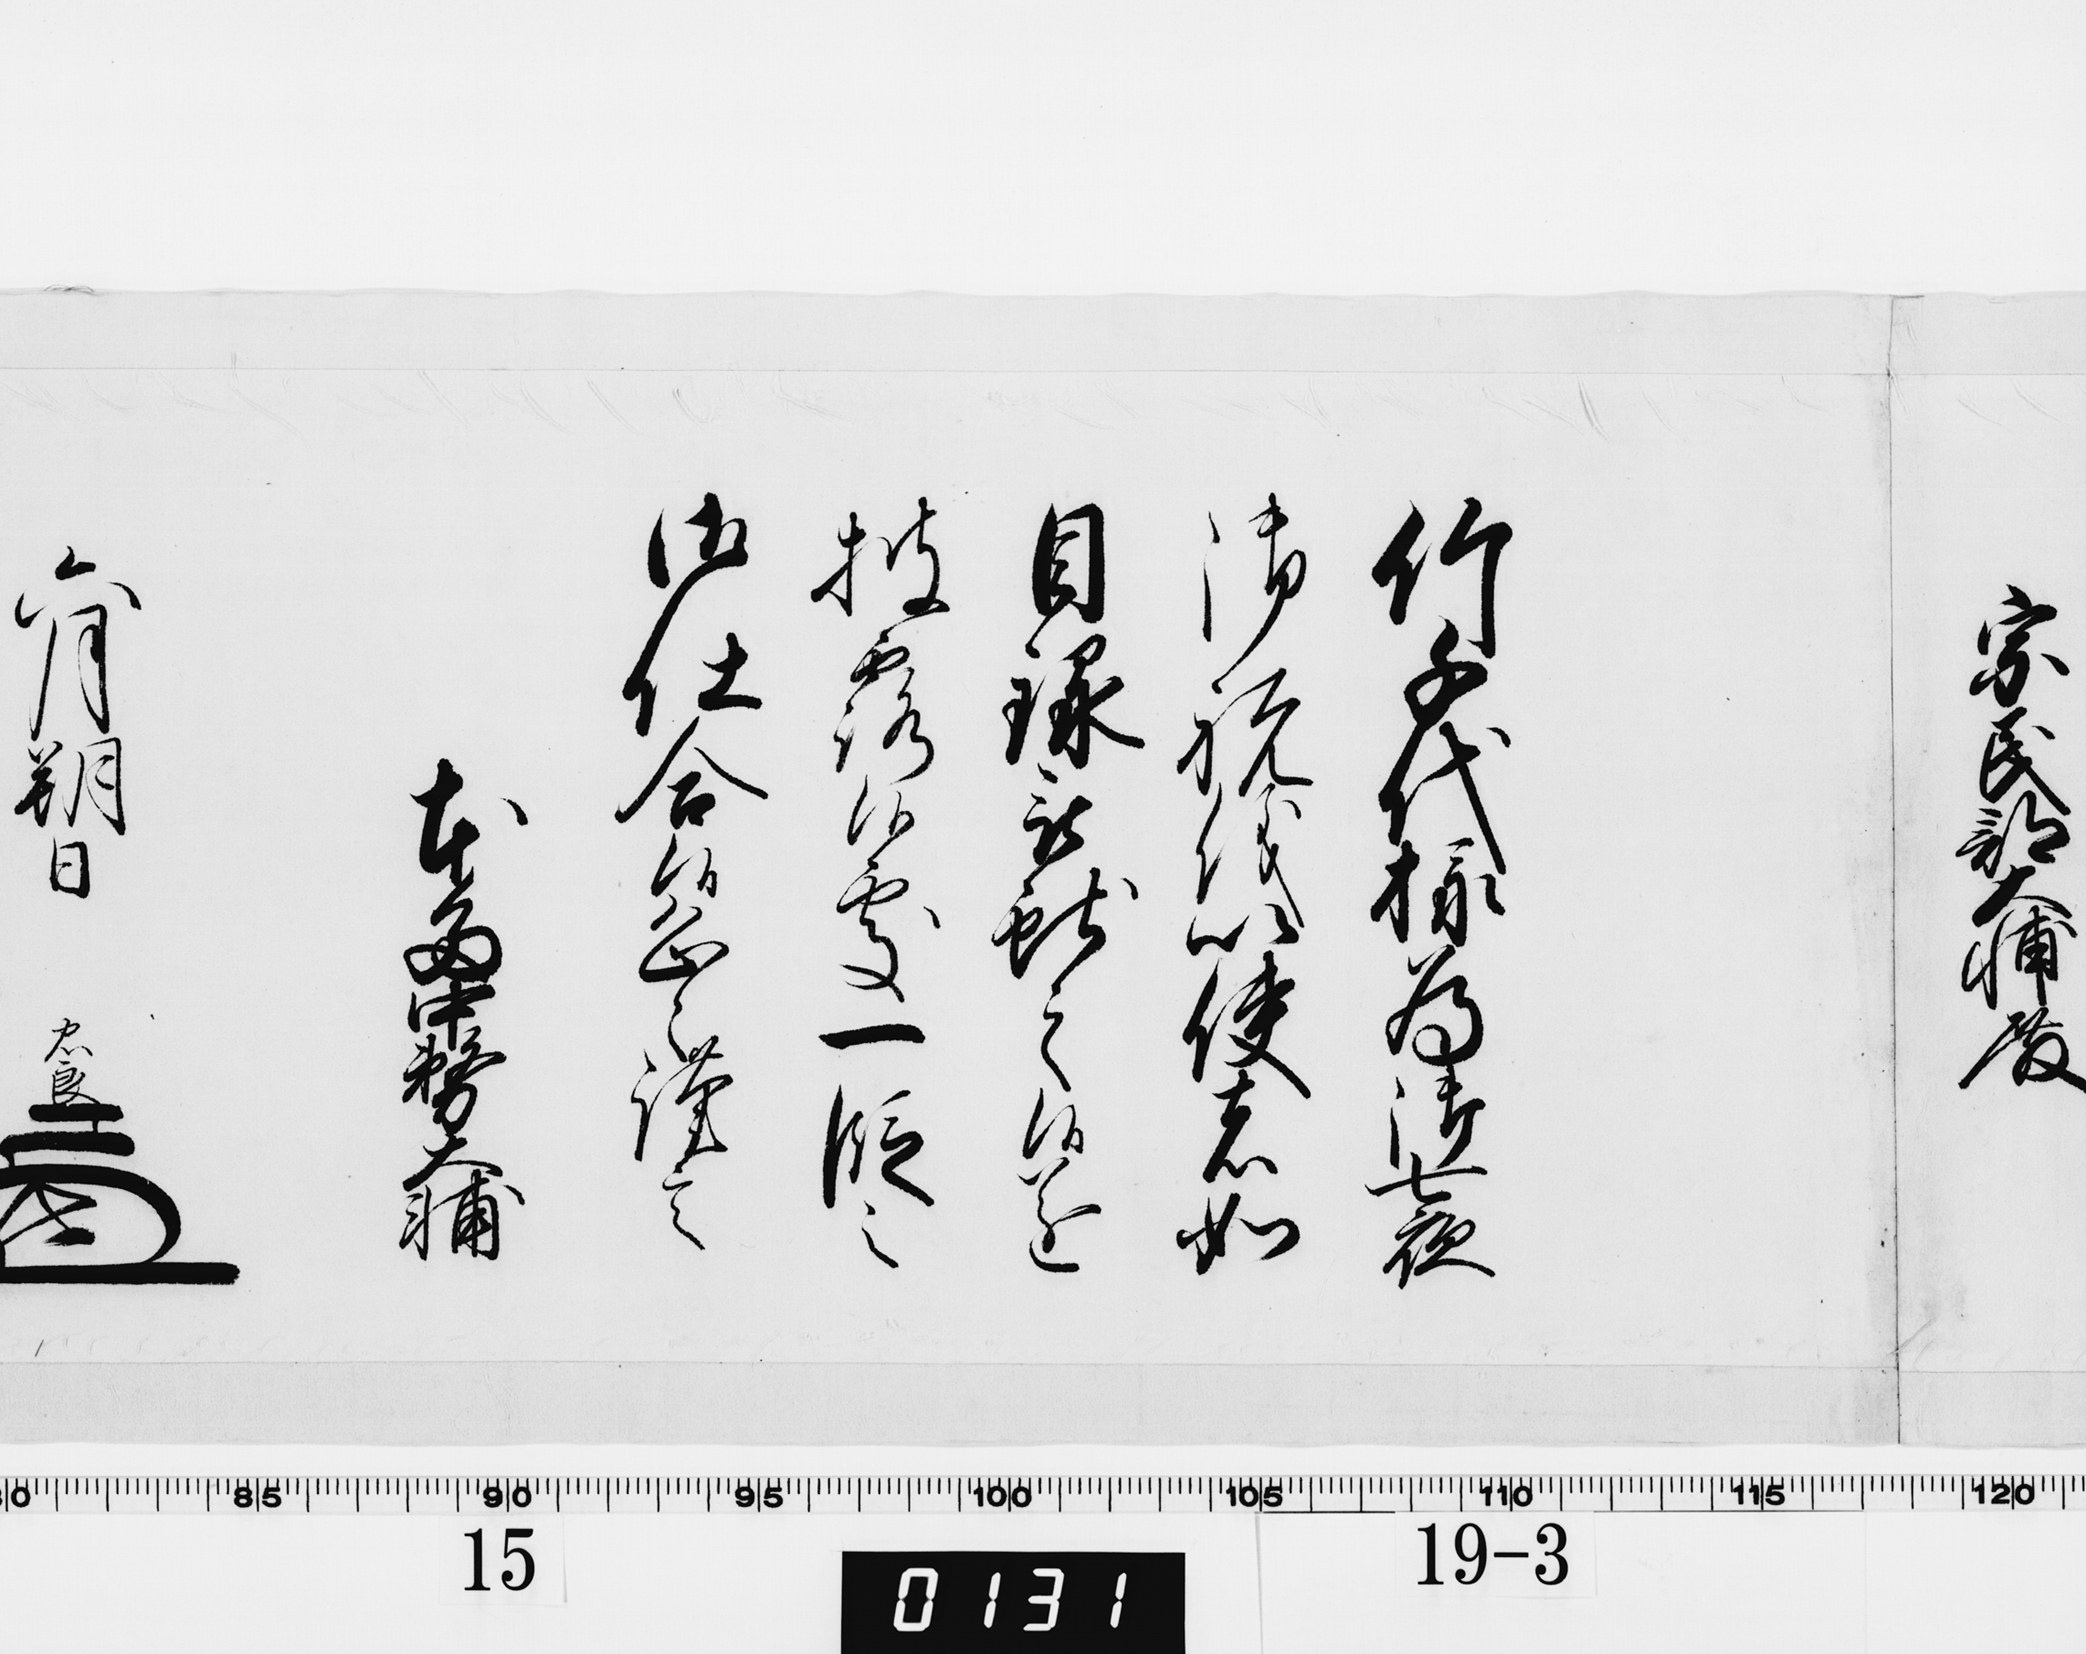 宗民部大輔殿
竹千代様為御七夜
御祝儀以使者如
目録被献之候遂
披露候処一段之
御仕合候恐々謹言
本多中務大輔
六月朔日
忠良
80 85 90 95 100 105 110 115 120
15
0131
19-3